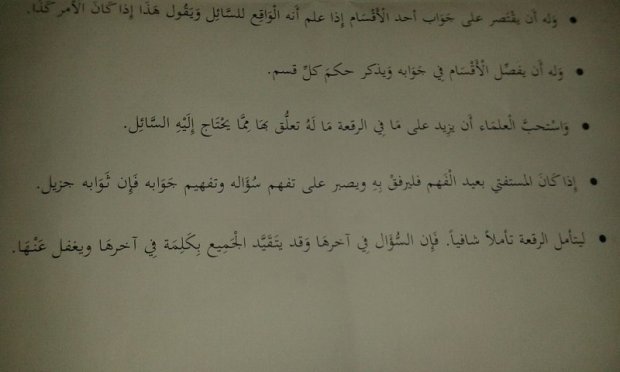 • وَله أَن يقْتَصر على جَوَاب أحد الْأَقْسَام إِذا علم أَنه الْوَاقِع للسَّائِل وَيَقُول هَذَا إِذا كَانَ الْأَمر كَذَا.
• وَله أَن يفصّل الْأَقْسَام فِي جَوَابه وَيذكر حكمَ كلِّ قسم.
• وَاسْتحبَّ الْعلمَاء أَن يزِيد على مَا فِي الرقعة مَا لَهُ تعلُّق بهَا مِمَّا يَحْتَاج إِلَيْهِ السَّائِل.
• إِذا كَانَ المستفتي بعيد الْفَهم فليرفقْ بِهِ ويصبر على تفهم سُؤَاله وتفهيم جَوَابه فَإِن ثَوَابه جزيل.
• ليتأمل الرقعة تأملاً شافياً. فَإِن السُّؤَال فِي آخرهَا وَقد يتَقَيَّد الْجَمِيع بِكَلِمَة فِي آخرهَا ويغفل عَنْهَا.